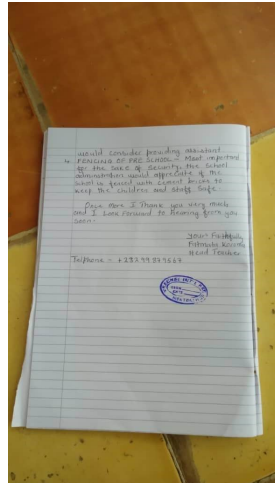 would consider providing assistant
4 FENCING OF PRE SCHOOL - Most important
for the sake of Security, the School
administrators would appreciate if the
School is fenced with cement bricks to
keep the children and staff safe
Once more I Thank you very much
and I Look Forward to Hearing from you
soon.
Yours Faithfully
Fatmata
Head Teacher
Telphone -